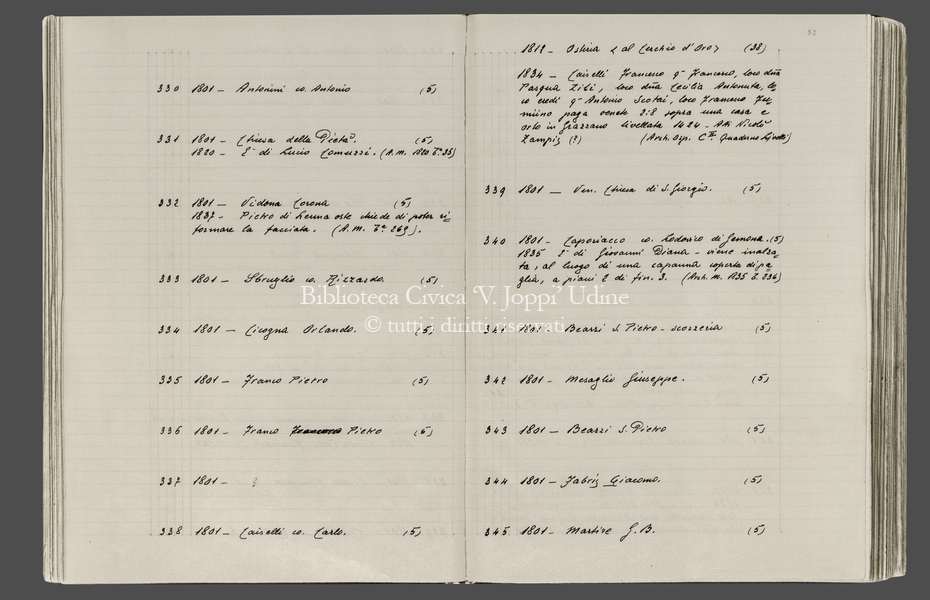 330 1801 - Antonini co. Antonio (5)
331 1801 - Chiesa della Pietà. (5)
1820 - E' di Lucio Comuzzi. (A.M. 1820 
332 1801 - Vidona Corona (5)
1837 - Pietro di Lenna oste chiede di poter ri=
formare la facciata. (A.M. 269).
333 1801 - Sbruglio co. Rizzardo. (5)
334 1801 - Cicogna Orlando. (5)
335 1801 - Franco Pietro (5)
336 1801 - Franco Pietro (5)
337 1801 - ?
338 1801 - Caiselli co. Carlo. (5)
52
1812 - Osteria < al Cerchio d'Oro > (38)
1834 - Caiselli Francesco q.m Francesco, loco dña
Pasqua Zibi, loco dña Cecilia Antonuta, lo=
co eredi q.m Antonio Scotti, loco Francesco
paga venete 2:8 sopra una casa e
orto in Grazzano livellata 1424 - Atti Nicolò
Zampis (?) (Arch. Osp. Quaderno Livelli)
339 1801 - Ven. Chiesa di S. Giorgio. (5)
340 1801 - Caporiacco co. Lodovico di Gemona. (5)
1835 E' di Giovanni Diana - viene inalza=
ta, al luogo di una capanna coperta di pa=
glia, a piani 2 di fin. 3. (Arch. M. 1835 236)
341 1801 - Bearzi S. Pietro - scorzeria (5)
342 1801 - Mesaglio Giuseppe. (5)
343 1801 - Bearzi S. Pietro (5)
344 1801 - Fabris Giacomo. (5)
345 1801 - G.B. (5)
Biblioteca Civica 'V. Joppi' Udine
© tutti i diritti riservati